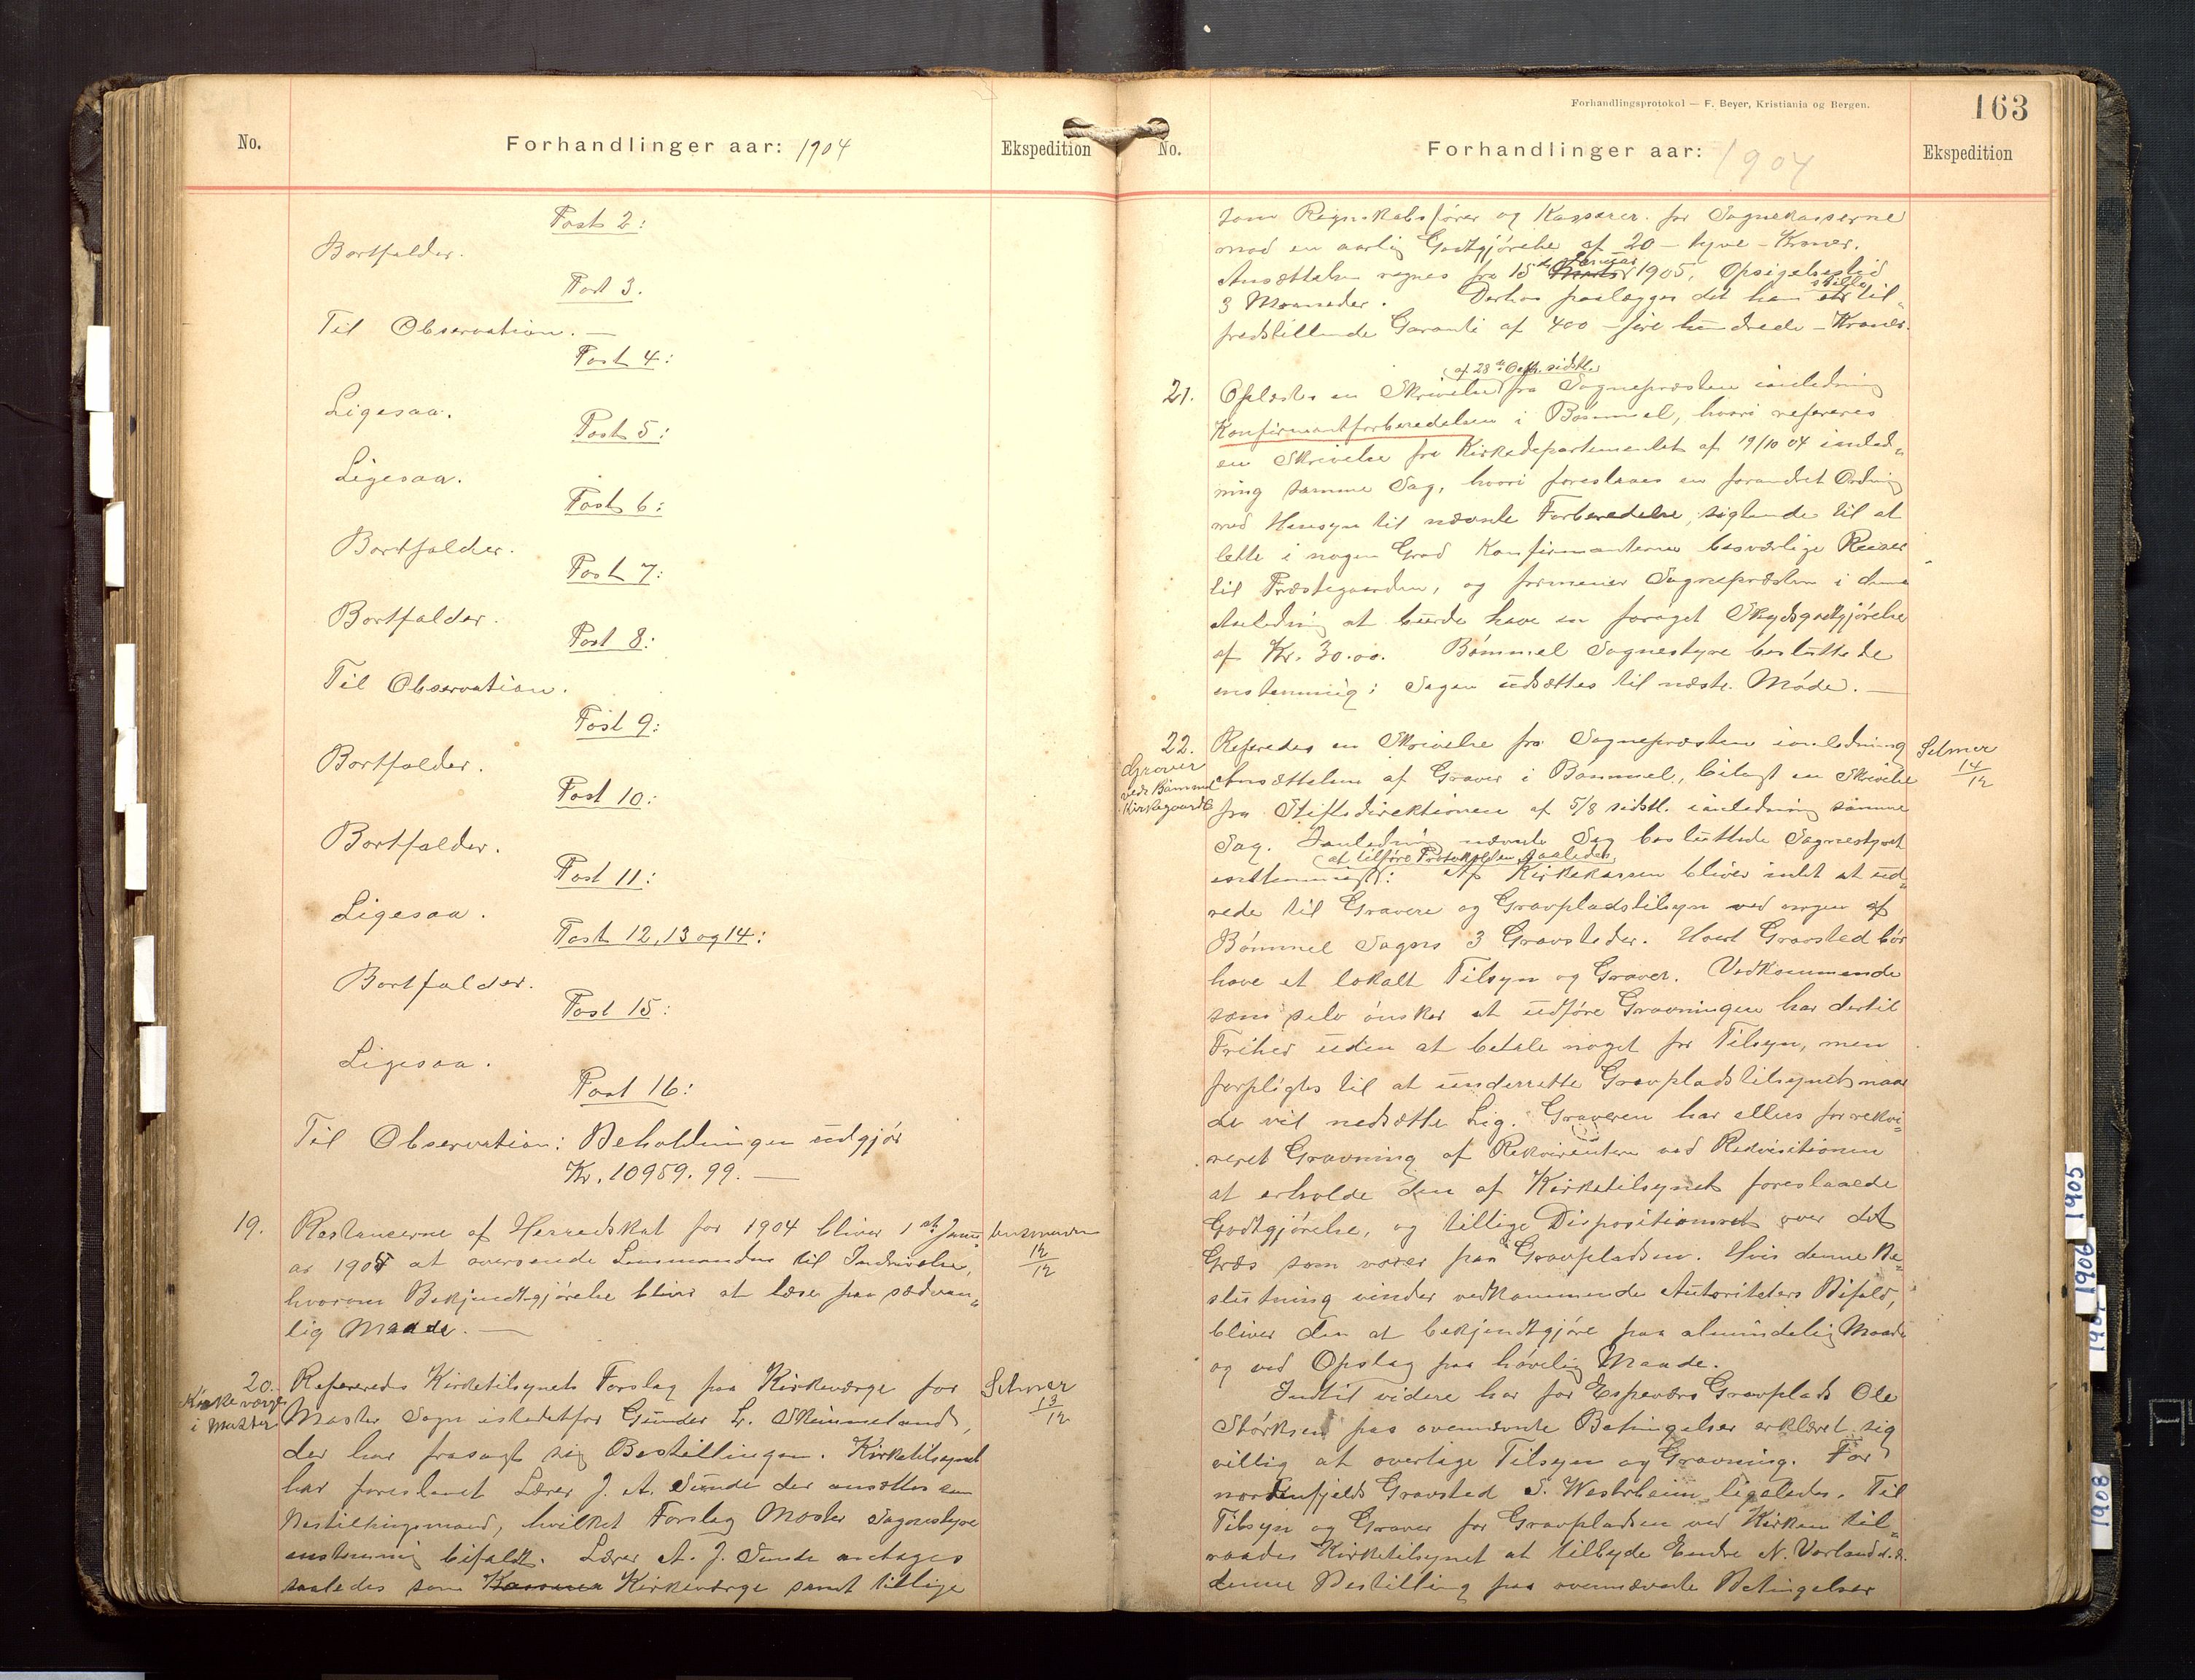 No.
Forhandlinger aar: 1904
Ekspedition
Post 2:
Bortfalder.
Post 3.
Til Observation. —
Post 4:
Ligesaa.
Post 5:
Ligesaa.
Post 6:
Bortfalder.
Post 7:
Bortfalder.
Post 8:
Til Observation.
Post 9:
Bortfalder.
Post 10:
Bortfalder.
Post 11:
Ligesaa.
Post 12, 13 og 14:
Bortfalder.
Post 15:
Ligesaa.
Post 16:
Til Observation: Beholdningen udgjør
Kr. 10959.99. —
19. Restancerne af Herredskat for 1904 bliver 1ste Janu-
Lensmanden 12/12
ar 1905 at oversende Lensmanden til Inddrivelse,
hvorom Bekjendtgjørelse bliver at læse paa sædvan-
lig Maade. —
20. Refereredes Kirketilsynets Forslag paa Kirkeværge for
Selmer 13/12
Kirkeværge
i Moster
Moster Sogn istedetfor Gunder L. Skimmeland,
der har frasagt sig Bestillingen. Kirketilsynet
har foreslaaet Lærer J. A. Sunde der ansættes som
Bestillingsmand, hvilket Forslag Moster Sognestyre
enstemmig bifaldt. Lærer A. J. Sunde antages
saaledes som Kasserer Kirkeværge samt tillige
Forhandlingsprotokol — F. Beyer, Kristiania og Bergen.
163
No.
Forhandlinger aar: 1904
Ekspedition
som Regnskabsfører og Kasserer for Sognekasserne
mod en aarlig Godtgjørelse af 20 — tyve — Kroner.
Januar
Ansættelsen regnes fra 15de Marts 1905, Opsigelsestid
stille
3 Maaneder. Derhos paalægges det ham at til-
fredstillende Garanti af 400 — fire hundrede — Kroner.
(af 28de Oktb. sidstl.)
21. Oplæstes en Skrivelse fra Sognepræsten ianledning
Konfirmantforberedelsen i Bømmel, hvori refereres
en Skrivelse fra Kirkedepartementet af 19/10 04 ianled-
ning samme Sag, hvori foreslaaes en forandret Ordning
med Hensyn til nævnte Forberedelse, sigtende til at
lette i nogen Grad Konfirmanternes besværlige Reiser
til Præstegaarden, og formener Sognepræsten i denne
Anledning at burde have en forøget Skydsgodtgjørelse
af Kr. 30.00. Bømmel Sognestyre besluttede
enstemmig: Sagen udsættes til næste Møde. —
22. Refereredes en Skrivelse fra Sognepræsten ianledning
Selmer 14/12
Graver
ved Bømmel
Kirkegaard
Ansættelsen af Graver i Bømmel, bilagt en Skrivelse
fra Stiftsdirektionen af 5/8 sidstl. ianledning samme
Sag. Ianledning nævnte Sag besluttede Sognestyret
(at tilføre Protokollen saaledes)
enstemmigt: Af Kirkekassen bliver intet at ud-
rede til Gravere og Gravpladstilsyn ved nogen af
Bømmel Sogns 3 Gravsteder. Hvert Gravsted bør
have et lokalt Tilsyn og Graver. Vedkommende
som selv ønsker at udføre Gravningen har dertil
Frihed uden at betale noget for Tilsyn, men
forpligtes til at underrette Gravpladstilsynet naar
de vil nedsætte Lig. Graveren har ellers for rekvi-
reret Gravning af Rekvirenten ved Rekvisitionen
at erholde den af Kirketilsynet foreslaaede
Godtgjørelse, og tillige Dispositionsret over det
Græs som voxer paa Gravpladsen. Hvis denne Be-
slutning vinder vedkommende Autoriteters Bifald,
bliver den at bekjendtgjøre paa almindelig Maade
og ved Opslag paa høvelig Maade.
Indtil videre har for Espeværs Gravplads Ole
Størksen paa ovennævnte Betingelser erklæret sig
villig at overtage Tilsyn og Gravning. For
nordenfjelds Gravsted S. Westrheim ligeledes. Til
Tilsyn og Graver for Gravpladsen ved Kirken til-
raades Kirketilsynet at tilbyde Endre N. Vorland d.æ.
denne Bestilling paa ovennævnte Betingelser
1905
1906
1907
1908